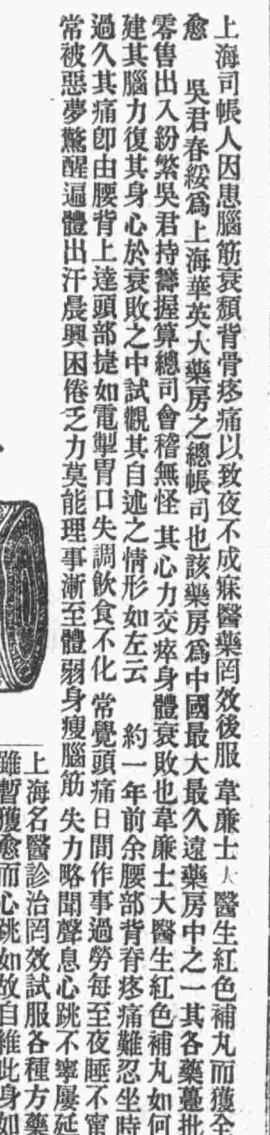 上海司帳人因患腦筋衰頹背骨疼痛以致夜不成寐醫藥罔效後服 韋廉士大醫生紅色補丸而獲全
愈 吳君春綏爲上海華英大藥房之總帳司也該藥房爲中國最大最久遠藥房中之一其各藥躉批
零售出入紛繁吳君持籌握算總司會稽無怪 其心力交瘁身體衰敗也韋廉士大醫生紅色補丸如何
建其腦力復其身心於衰敗之中試觀其自述之情形如左云 約一年前余腰部背脊疼痛難忍坐時
過久其痛卽由腰背上達頭部捷如電掣胃口失調飲食不化 常覺頭痛日間作事過勞每至夜睡不甯
常被惡夢驚醒遍體出汗晨興困倦乏力莫能理事漸至體弱身瘦腦筋 失力略聞聲息心跳不寧屢延
上海名醫診治罔效試服各種方藥
雖暫獲愈而心跳如故自維此身如